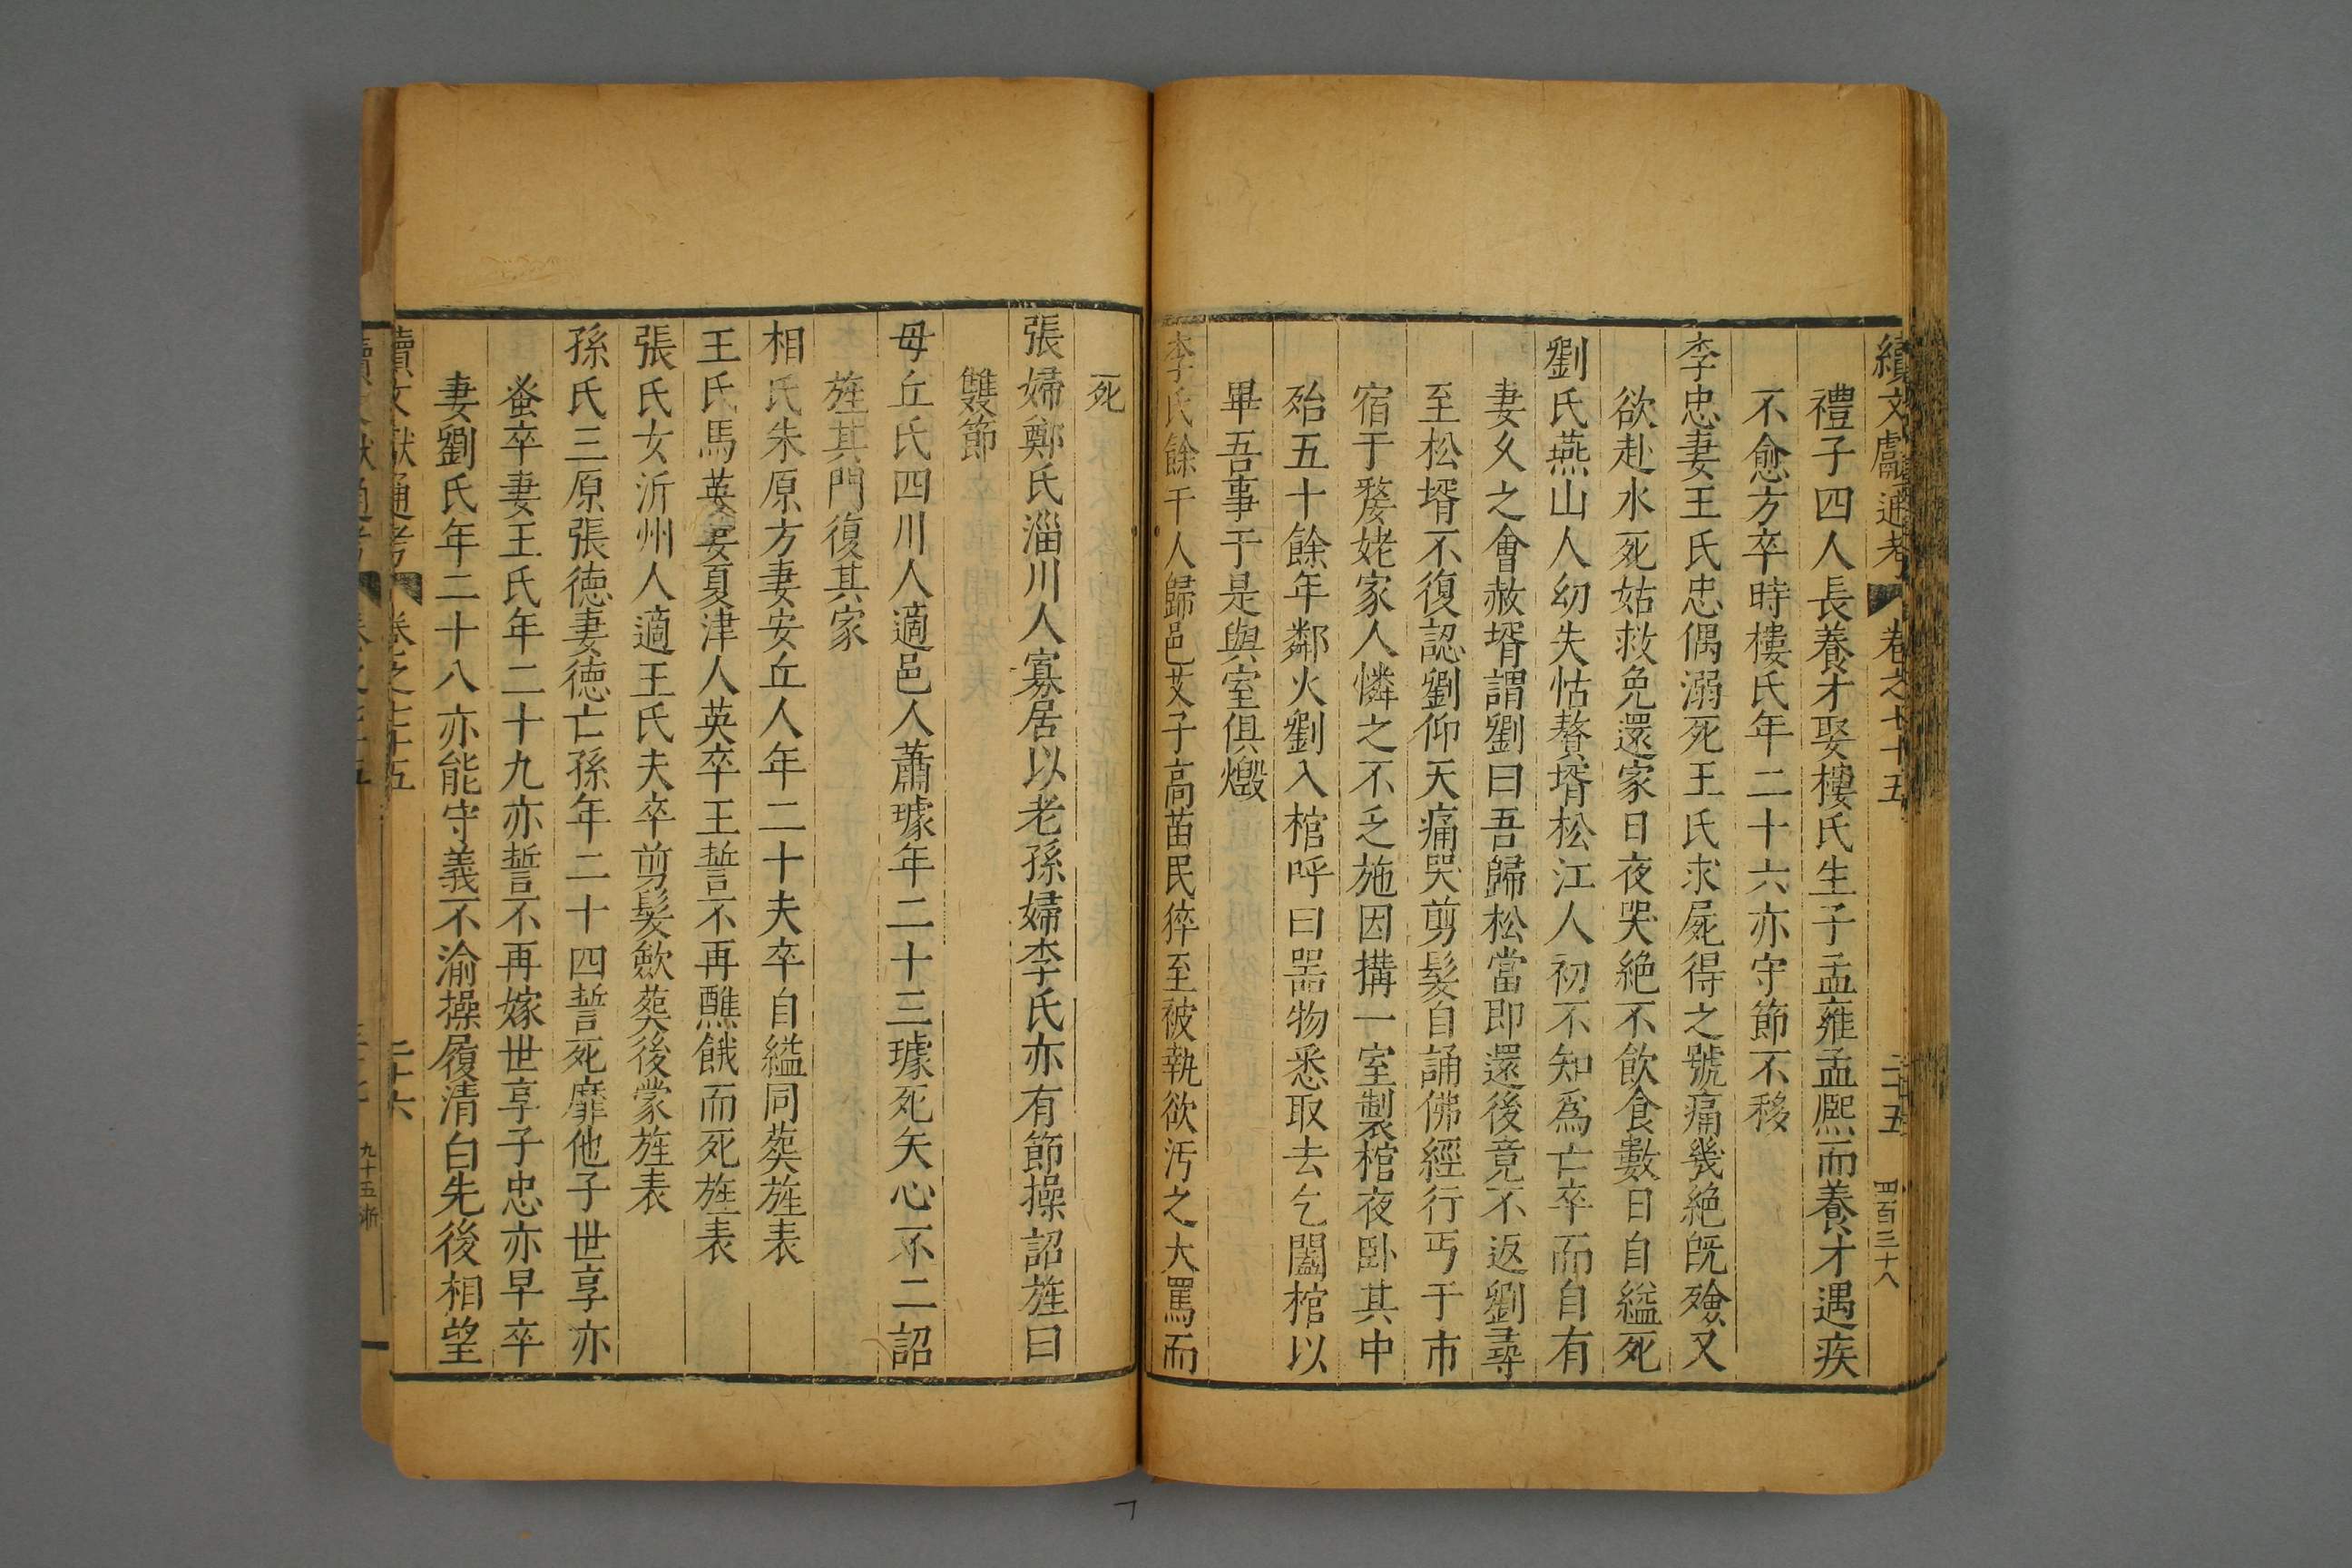 續文獻通考 卷之七十五 二十五 四百三十八
禮子四人長養才娶樓氏生子孟雍孟熙而養才遇疾
不愈方卒時樓氏年二十六亦守節不移
李忠妻王氏忠偶溺死王氏求屍得之號痛幾絕旣殮又
欲赴水死姑救免還家日夜哭絕不飲食數日自縊死
劉氏燕山人幼失怙贅壻松江人初不知爲亡卒而自有
妻久之會赦壻謂劉曰吾歸松當即還後竟不返劉尋
至松壻不復認劉仰天痛哭剪髮自誦佛經行丐于市
宿于婺姥家人憐之不乏施因搆一室製棺夜臥其中
殆五十餘年鄰火劉入棺呼曰噐物悉取去乞闔棺以
畢吾事于是與室俱燬
李氏餘干人歸邑艾子高苗民猝至被執欲汚之大罵而
死
張婦鄭氏淄川人寡居以老孫婦李氏亦有節操詔旌曰
雙節
毋丘氏四川人適邑人蕭璩年二十三璩死矢心不二詔
旌其門復其家
相氏朱原方妻安丘人年二十夫卒自縊同葬旌表
王氏馬英妻夏津人英卒王誓不再醮餓而死旌表
張氏女沂州人適王氏夫卒剪髮歛葬後蒙旌表
孫氏三原張德妻德亡孫年二十四誓死靡他子世享亦
蚤卒妻王氏年二十九亦誓不再嫁世享子忠亦早卒
妻劉氏年二十八亦能守義不渝操履清白先後相望
續文獻通考 卷之七十五 二十六
九十五